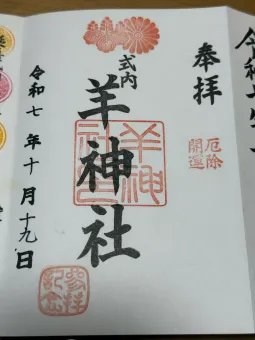 奉拝
厄除
開運
式内
羊神社
羊神
社
令和七年十月十九日
参拝
記念